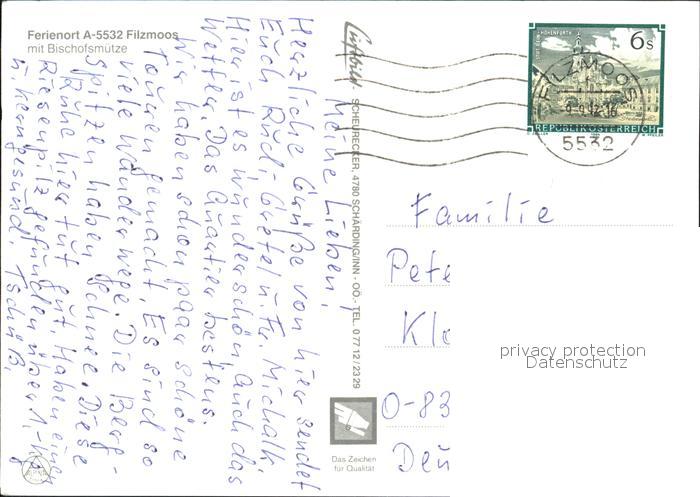 Ferienort A-5532 Filzmoos
mit Bischofsmütze
Meine Lieben!
Herzliche Grüße von hier sendet
Euch Rudi, Gustel u. Fr. Michalk
Hier ist es wunderschön auch das
Wetter. Das Quartier bestens.
Wir haben schon paar schöne
Touren gemacht. Es sind so
viele Wanderwege. Die Berg-
spitzen haben Schnee. Diese
Ruhe hier tut gut. Haben einen
Riesenpilz gefunden über 1. Kg
u. kerngesund. Tschüß.
Luftbild SCHEURECKER, 4780 SCHÄRDING/INN - OÖ.- TEL. 0 77 12 / 23 29
Das Zeichen
für Qualität
STIFT REIN-HOHENFURTH
6 s
REPUBLIK ÖSTERREICH
FILZMOOS
5532
Familie
Pete
Klo
O-83
Deu
privacy protection
Datenschutz